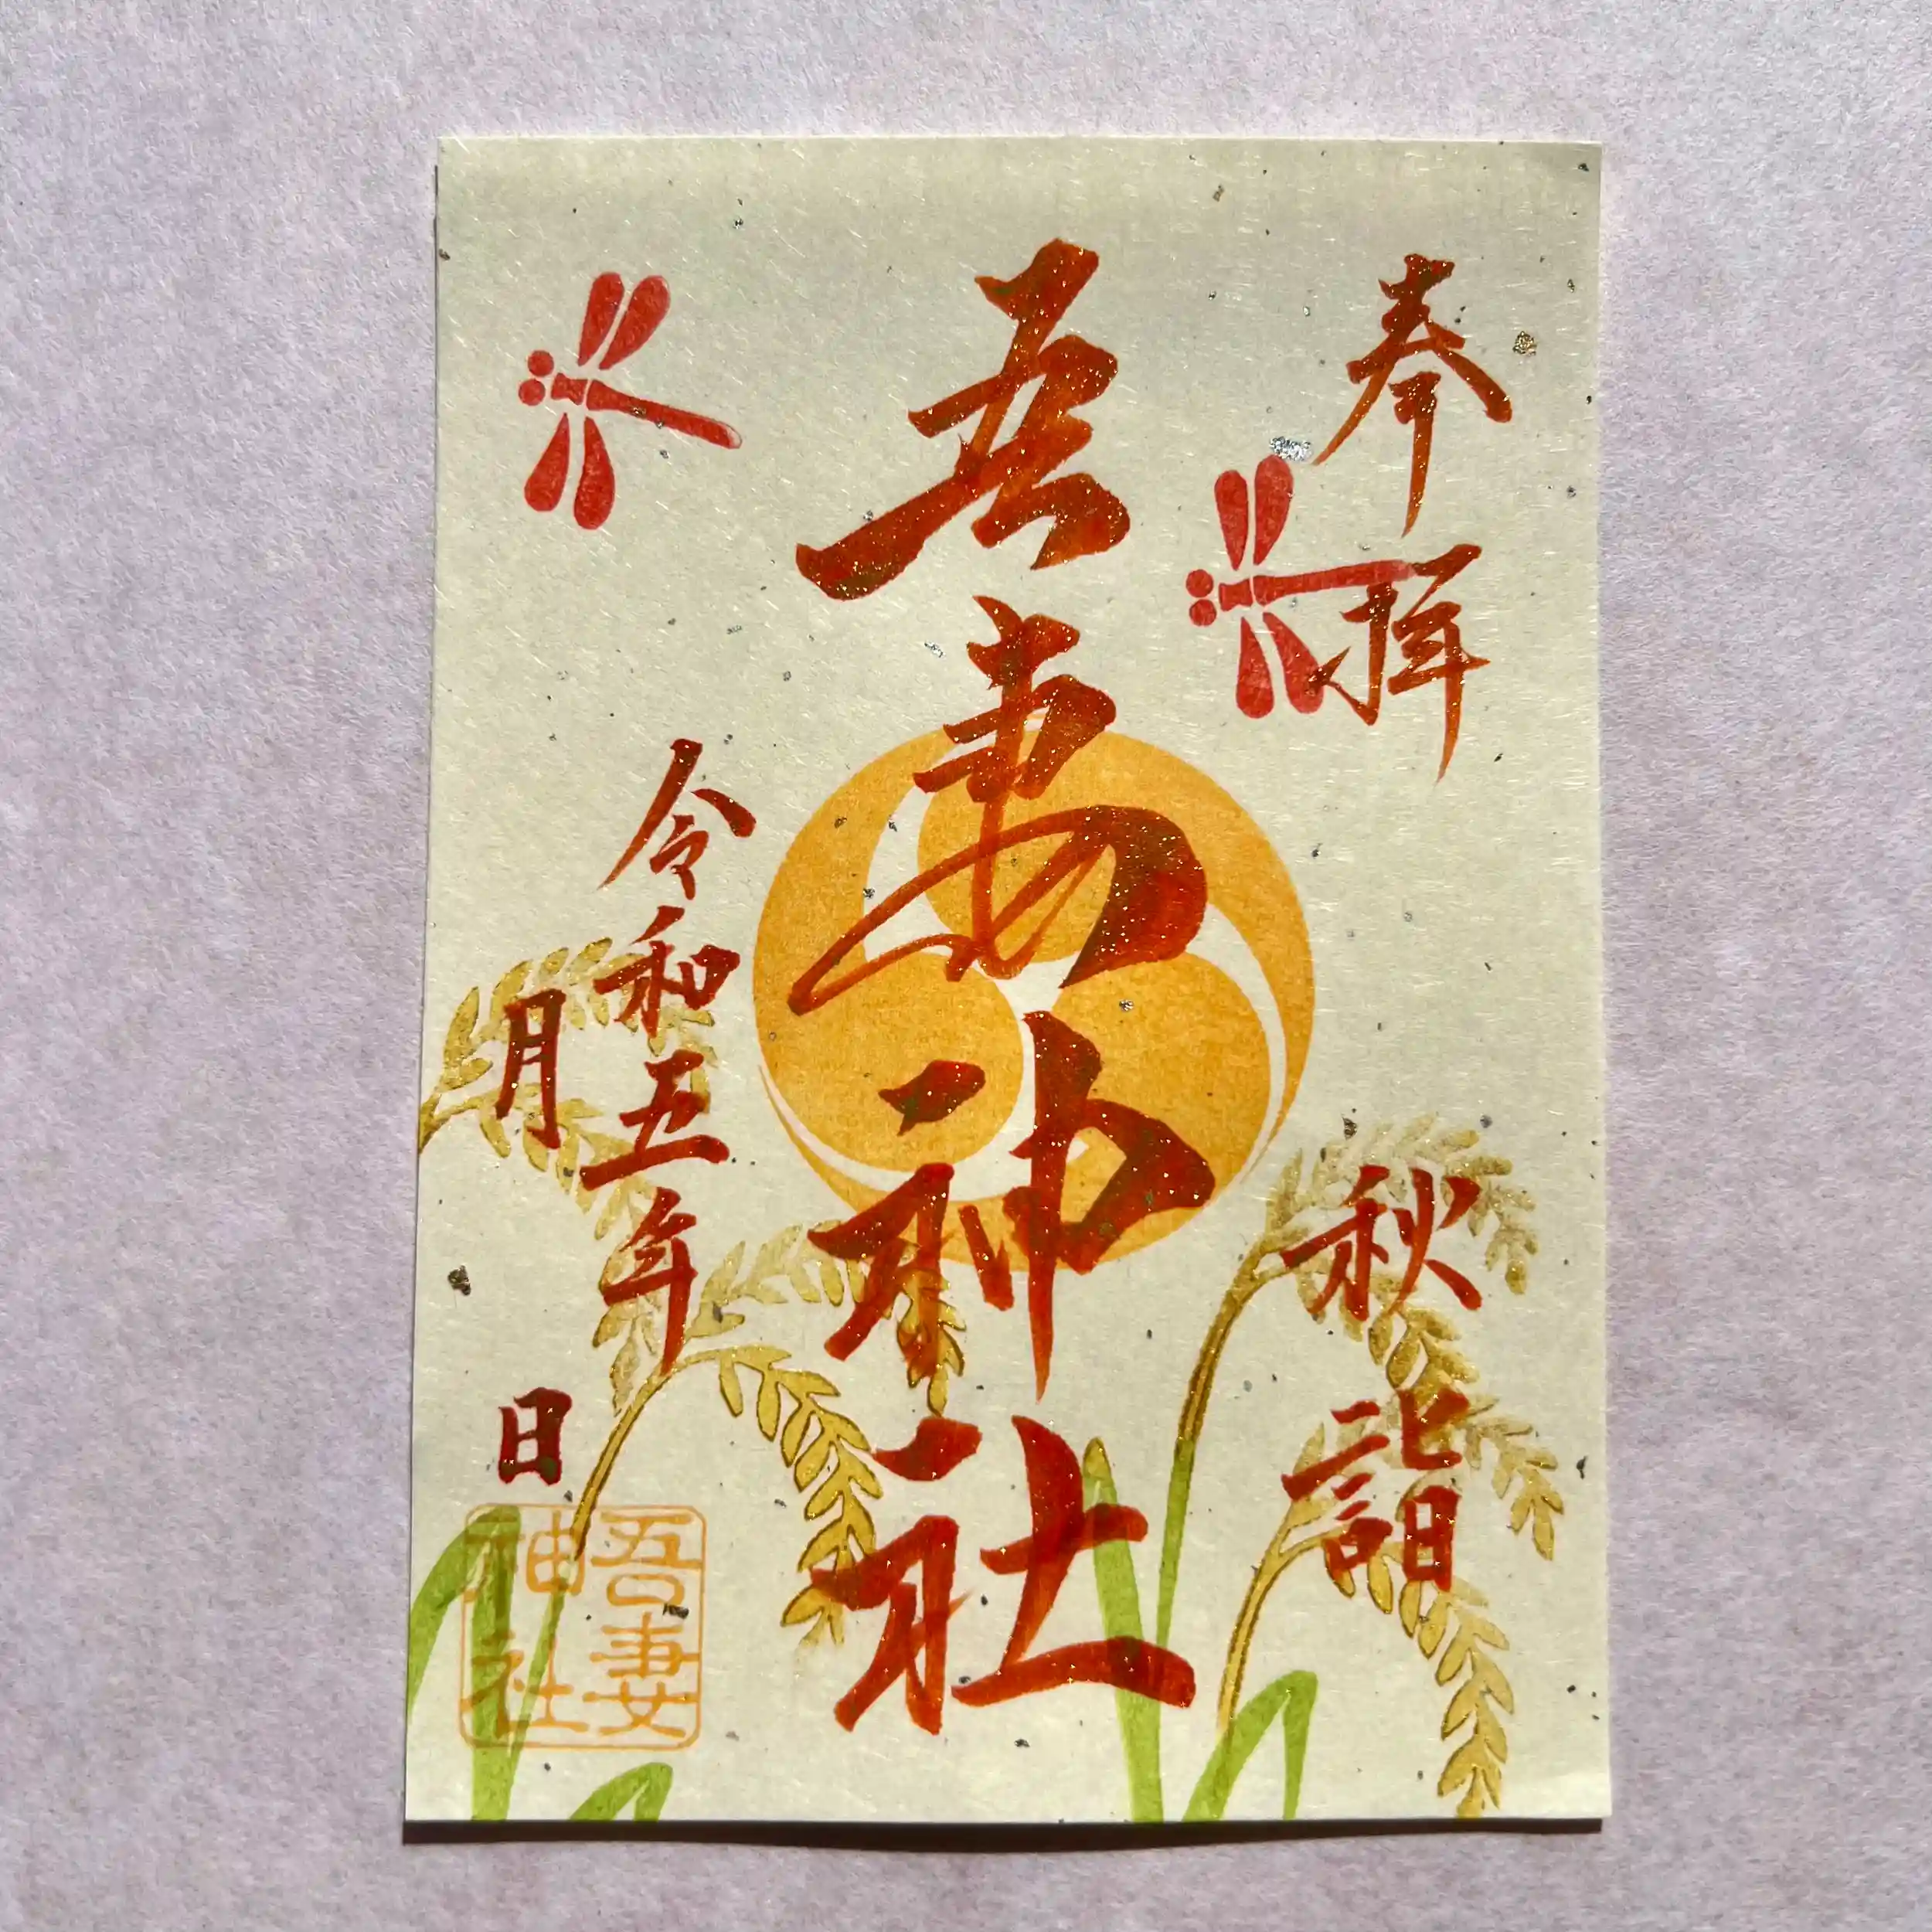 奉拝
秋詣
吾妻神社
令和五年
月　日
吾妻
神社